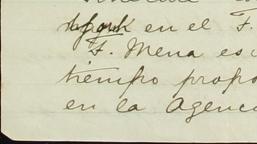 en el F.
F. Mena es
tiempo propo
en la Agenc